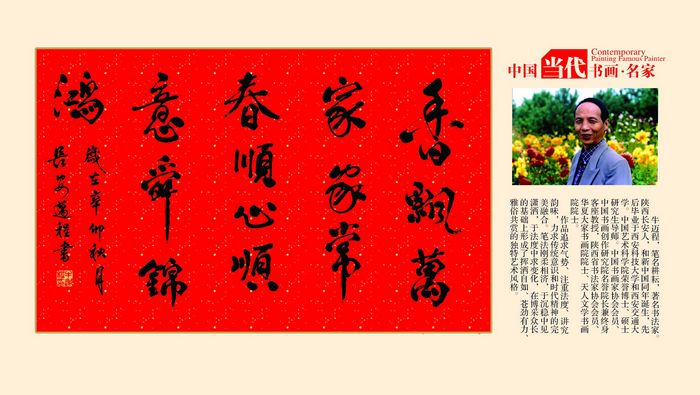 香飄萬
家家常
春順心順
意舜錦
鴻
歲在辛卯秋月
長安邁程書
Contemporary
Painting Famous Painter
中国当代书画·名家
牛迈程，笔名耕耘，著名书法家。
陕西长安人，和新中国同年诞生，先
后毕业于西安科技大学和西安交通大
学。中国艺术科学院荣誉博士、硕士
研究生导师。中国书画家协会会员、
中国书画创作研究院名誉院长兼终身
客座教授，陕西省书法家协会会员、
华夏大家书画院院士、天人文学书画
院院士。
作品追求气势、注重法度、讲究
韵味，力求传统意识和时代精神的完
美融合。笔法刚柔相济，于沉稳中见
潇洒，于法度中求变化，在博采众长
的基础上形成了挥洒自如、苍劲有力、
雅俗共赏的独特艺术风格。